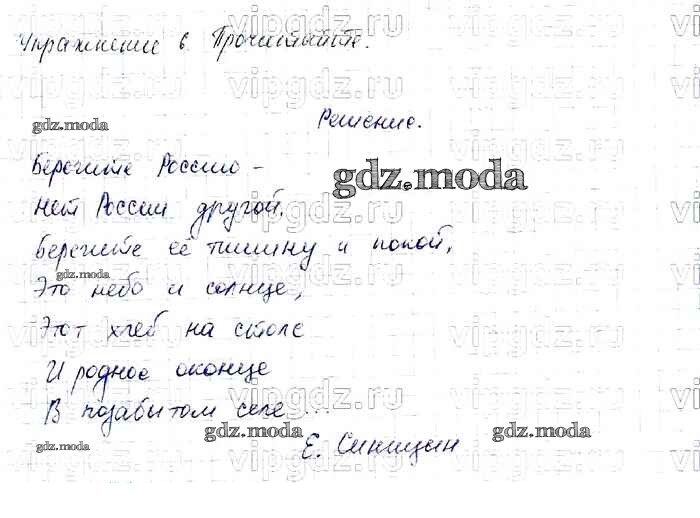 Упражнение 6. Прочитайте.
Решение.
Берегите Россию -
Нет России другой.
Берегите её тишину и покой,
Это небо и солнце,
Этот хлеб на столе
И родное оконце
В позабытом селе ...
Е. Синицын
gdz.moda
gdz.moda
gdz.moda
gdz.moda
gdz.moda
gdz.moda
vipgdz.ru